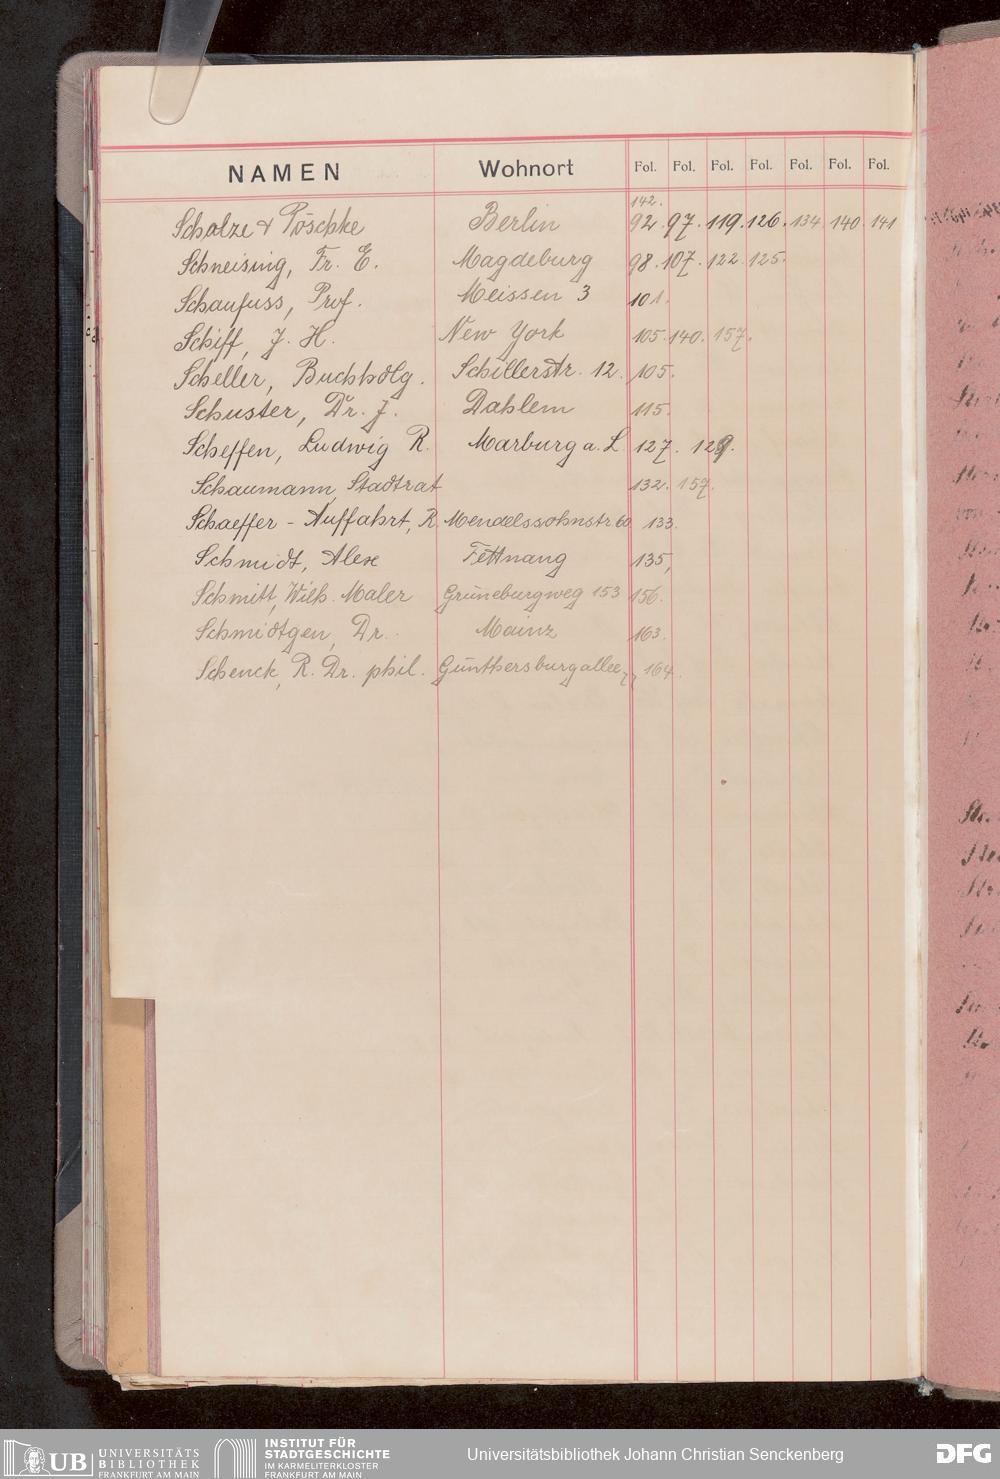 NAMEN Wohnort Fol. Fol. Fol. Fol. Fol. Fol. Fol.
142.
Scholze & Pöschke Berlin 92. 97. 119. 126. 134. 140. 141
Schneising, Fr. E. Magdeburg 98. 107. 122. 125.
Schaufuss, Prof. Meissen 3 101.
Schiff, J. H. New York 105. 140. 157.
Scheller, Buchhdlg. Schillerstr. 12. 105.
Schuster, Dr. J. Dahlem 115.
Scheffen, Ludwig R. Marburg a. L. 127. 129.
Schaumann, Stadtrat 132. 157.
Schaeffer - Auffahrt, R. Mendelssohnstr 60 133.
Schmidt, Alex Tettnang 135,
Schmitt, Wilh. Maler Grüneburgweg 153 156.
Schmidtgen, Dr. Mainz 163.
Schenck, R. Dr. phil. Günthersburgallee 77 164.
UB UNIVERSITÄTS
BIBLIOTHEK
FRANKFURT AM MAIN
INSTITUT FÜR
STADTGESCHICHTE
IM KARMELITERKLOSTER
FRANKFURT AM MAIN
Universitätsbibliothek Johann Christian Senckenberg
DFG